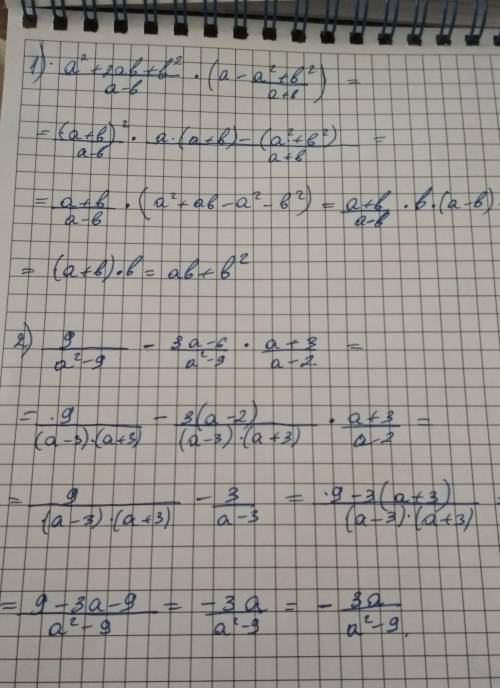 1) (a²+2ab+b²)/(a-b) · (a - (a²+b²)/(a+b)) =
= (a+b)²/(a-b) · (a·(a+b)-(a²+b²))/(a+b) =
= (a+b)/(a-b) · (a²+ab-a²-b²) = (a+b)/(a-b) · b·(a-b)
= (a+b)·b = ab+b²
2) 9/(a²-9) - (3a-6)/(a²-9) · (a+3)/(a-2) =
= 9/((a-3)·(a+3)) - 3(a-2)/((a-3)·(a+3)) · (a+3)/(a-2) =
= 9/((a-3)·(a+3)) - 3/(a-3) = (9-3(a+3))/((a-3)·(a+3)) =
= (9-3a-9)/(a²-9) = (-3a)/(a²-9) = - 3a/(a²-9).